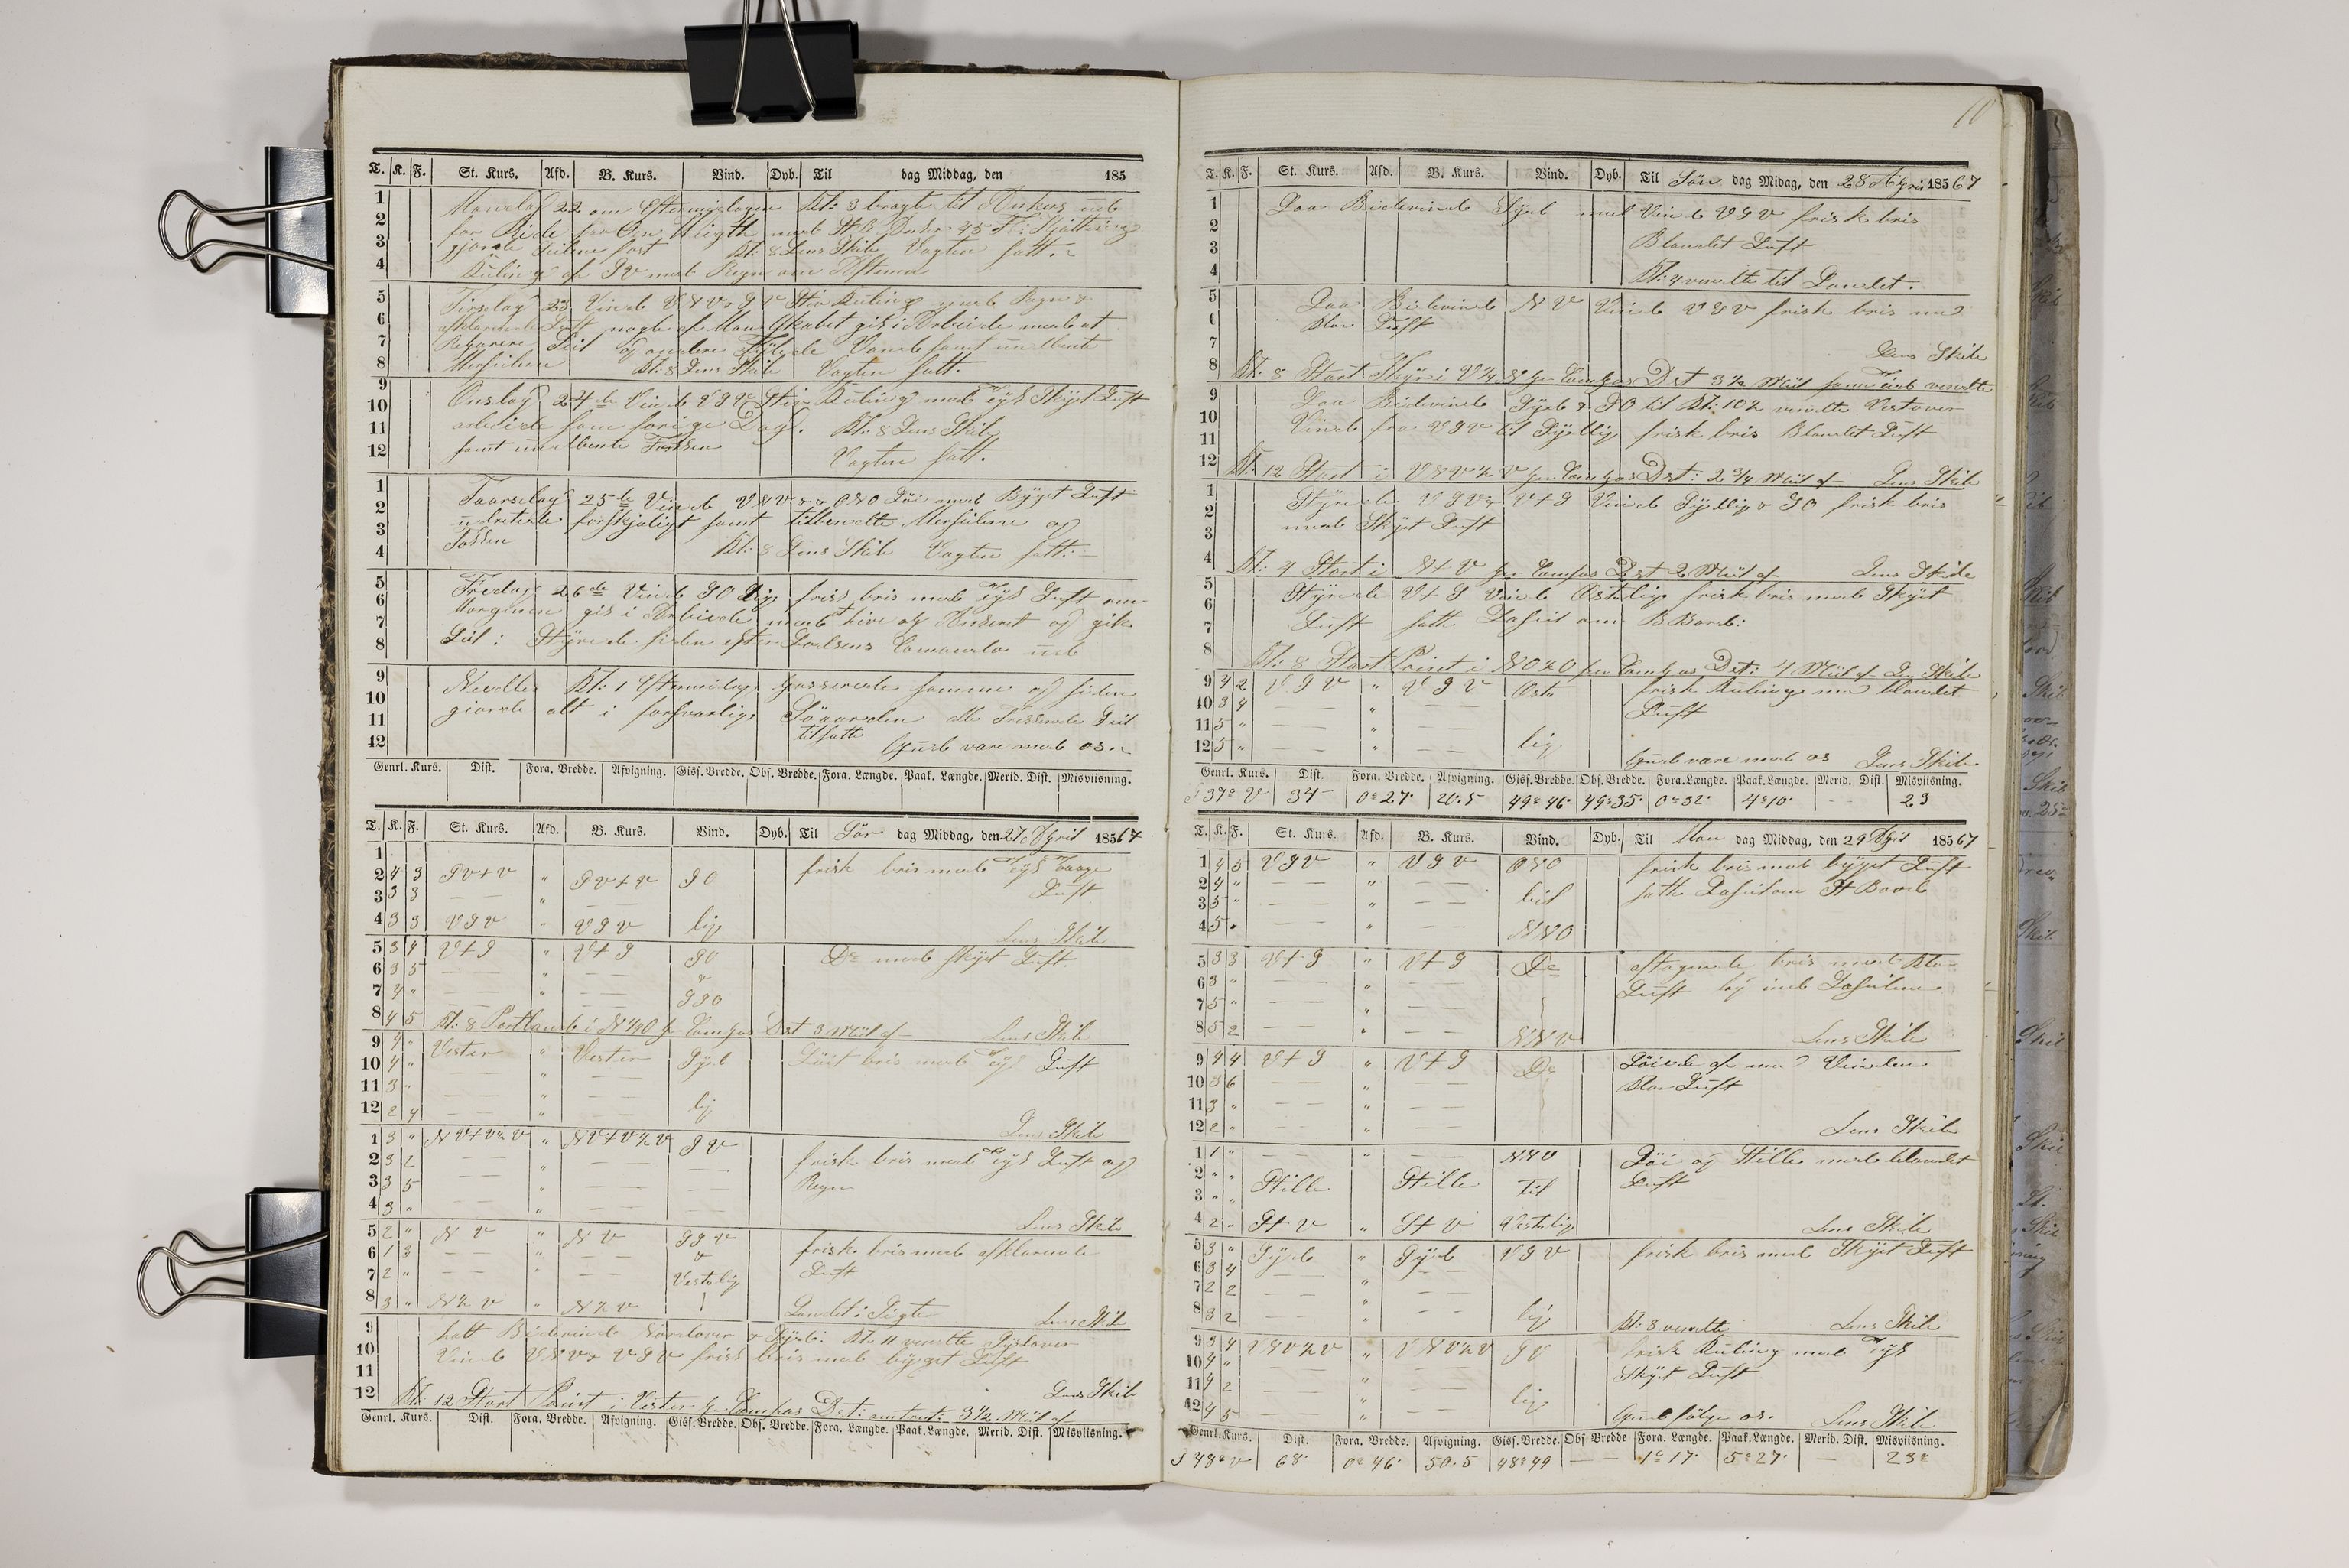 T. K. F. St. Kurs. Afd. B. Kurs. Vind. Dyb. Til dag Middag, den 185
1 Mandag 22 om Eftermiddagen Kl: 3 bragte til Ankers ud
2 for med St B Anker 45
3 gjorde Seilene fast Kl: 8 Lens Skib Vagten satt.
4 Kuling af SV med Regn om Aftenen
5 Tirsdag 23 Vind VNV & SV Stiv Kuling med Regn &
6 afklarende Luft nogle af Mandskabet gik i Arbeide med at
7 Reparere Seil og andere Fyldede Vand samt underbente
8 Merseilene Kl: 8 Lens Skib Vagten satt.
9 Onsdag 24de Vind VSV Stiv Kuling med Tyk Skyet Luft
10 arbeidede som forige Dag. Kl: 8 Lens Skib
11 samt underbente Fokken
12 Vagten satt.
1 Taarsdag 25de Vind VNV & ONO Löi med Byget Luft
2 udretede forskjeligt samt tilbendte Merseilene og
3 Fokken
4 Kl: 8 Lens Skib Vagten satt:
5 Fredag 26de Vind SO lig frisk bris med Tyk Luft om
6 Morgenen gik i Arbeide med hive op Ankeret og gik
7 Seil: Styrede siden efter Lodsens Comando ud
8
9 Nedles Kl: 1 Eftermidag passerede samme og siden
10 giorde alt i forsvarlig Söaarden alle Seil
11 tilsatte
12 Gud vare med os.
Genrl. Kurs. Dist. Fora. Bredde. Afvigning. Gisf. Bredde. Obs. Bredde. Fora. Længde. Paak. Længde. Merid. Dist. Misviisning.
T. K. F. St. Kurs. Afd. B. Kurs. Vind. Dyb. Til Lör dag Middag, den 27 April 18567
1
2 4 3 SV+V " SV+V SO frisk bris med Tyk Taage
3 3 3 — — " — — Luft
4 3 3 VSV " VSV lig Lens Skib
5 3 4 V+S " V+S SO Do med skyet Luft
6 3 5 — — " — — &
7 4 " — — " — — SSO
8 4 5 Kl: 8 Portland i N½O pr Compas Dst 3 Miil af Lens Skib
9 4 " Vester " Vester Syd Löit bris med Tyk Luft
10 4 " — — " — —
11 3 " — — " — —
12 2 4 — — " — — lig Lens Skib
1 3 " NV+V½V " NV+V½V SV
2 3 2 — — " — — — frisk bris med Tyk Luft og
3 3 5 — — " — — — Regn
4 3 " — — " — — — Lens Skib
5 2 " NV " NV SSV
6 1 3 — — " — — & frisk bris med afklarende
7 2 " — — " — — Vestlig Luft
8 3 " N½V " N½V Landet i Sigte Lens Skib
9 holt Bidevind Nordover & Syd: Kl: 11 vendte Sydover
10 Vind VNV & VSV frisk bris med byget Luft
11 Lens Skib
12 Kl: 12 Start Point i Vester pr Compas Dst: omtrent 3½ Miil af
Genrl. Kurs. Dist. Fora. Bredde. Afvigning. Gisf. Bredde. Obs. Bredde. Fora. Længde. Paak. Længde. Merid. Dist. Misviisning.
10
T. K. F. St. Kurs. Afd. B. Kurs. Vind. Dyb. Til Sön dag Midag, den 28 April 18567
1 Laa Bidevind Syd med Vind VSV frisk bris
2
3 Blandet Luft
4 Kl: 4 vendte til Landet.
5 Laa Bidevind NV Vind VSV frisk bris med
6 Klar Luft
7 Lens Skib
8 Kl: 8 Start i V¼S pr Compas Dst 3½ Miil samme tid vendte
9 Laa Bidevind Syd & SO til Kl: 10½ vendte Vestover
10 Vind fra VSV til Sydlig frisk bris Blandet Luft
11
12 Kl: 12 Start i VNV½V pr Compas Dst: 2¾ Miil af Lens Skib
1 Styrede VSV & V+S Vind Sydlig & SO frisk bris
2 med Skyet Luft
3
4 Kl: 4 Start i N+V pr Compas Dst 2 Miil af Lens Skib
5 Styrede V+S Vind Östlig frisk bris med Skyet
6
7 Luft satte Laseil om BBord:
8 Kl: 8 Start Point i NO½O per Compas Dst: 4 Miil af Lens Skib
9 4 2 VSV " VSV Ost frisk Kuling med blandet
10 3 4 — — " — — Luft
11 5 " — — " — —
12 5 " — — " — — lig Gud vare med os Lens Skib
Genrl. Kurs. Dist. Fora. Bredde. Afvigning. Gisf. Bredde. Obs. Bredde. Fora. Længde. Paak. Længde. Merid. Dist. Misviisning.
S 37° V 34 0° 27' 20.5 49° 46' 49° 35' 0° 32' 4° 10' — 23
T. K. F. St. Kurs. Afd. B. Kurs. Vind. Dyb. Til Man dag Middag, den 29 April 18567
1 4 5 VSV " VSV ONO frisk bris med byget Luft
2 4 " — — " — — satte Laseilene St Boord
3 5 " — — " — — til
4 5 " — — " — — NNO
5 3 3 V+S " V+S Do aftagende bris med Klar
6 3 " — — " — — Luft ind Laseilene
7 5 " — — " — —
8 5 2 — — " — — NNV Lens Skib
9 4 4 V+S " V+S Do Löiede af med Vinden
10 3 6 — — " — — Klar Luft
11 3 " — — " — —
12 2 " — — " — — Lens Skib
1 1 " — — " — — NNV Löi og Stille med blandet
2 " " Stille Stille til Luft
3 " "
4 2 " St V " St V Vestlig Lens Skib
5 3 " Syd " Syd VSV frisk bris med Skyet Luft
6 3 4 — — " — —
7 2 2 — — " — —
8 3 2 — — " — — lig Kl: 8 vendte Lens Skib
9 3 4 VNV½V " VNV½V SV frisk Kuling med Tyk
10 4 " — — " — — Skyet Luft
11 4 2 — — " — — lig
12 4 5 — — " — — Gud fölge os. Lens Skib
Genrl. Kurs. Dist. Fora. Bredde. Afvigning. Gisf. Bredde. Obs. Bredde Fora. Længde. Paak. Længde. Merid. Dist. Misviisning.
S 48° V 68' 0° 46' 50.5 48° 49 — — 1° 17' 5° 27' — 23°